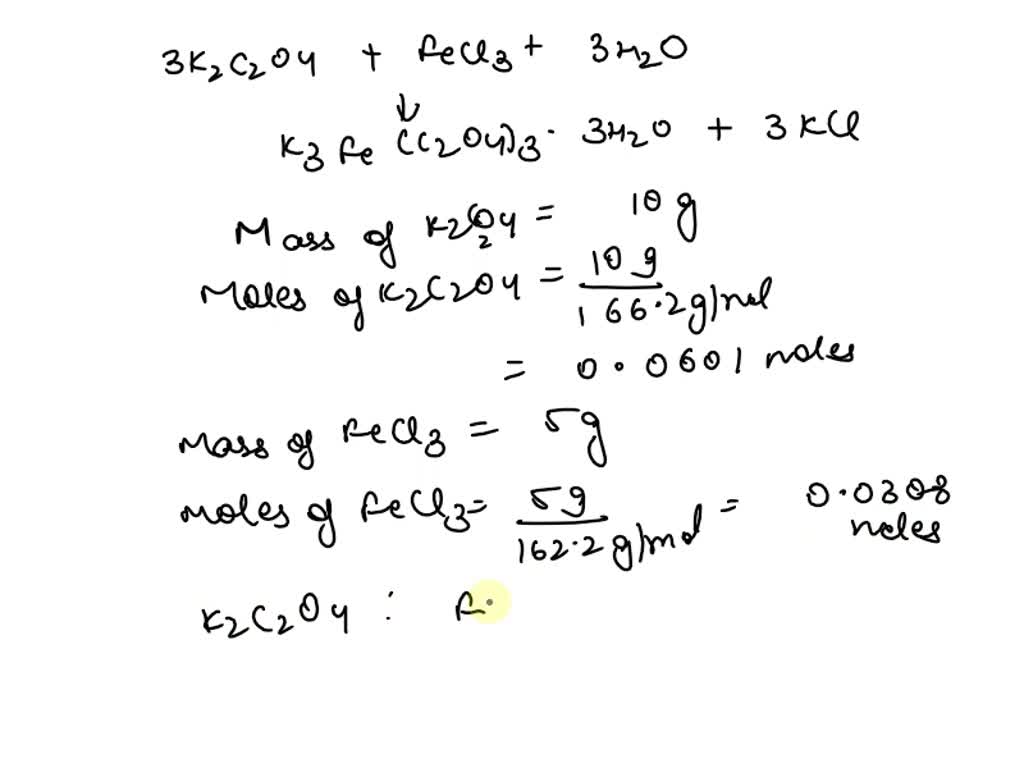 3K2C2O4 + FeCl3 + 3H2O
↓
K3Fe(C2O4)3· 3H2O + 3KCl
Mass of K2C2O4 = 10 g
Moles of K2C2O4 = 10 g / 166.2 g/mol
= 0.0601 moles
Mass of FeCl3 = 5g
Moles of FeCl3 = 5g / 162.2 g/mol = 0.0308 moles
K2C2O4 : F